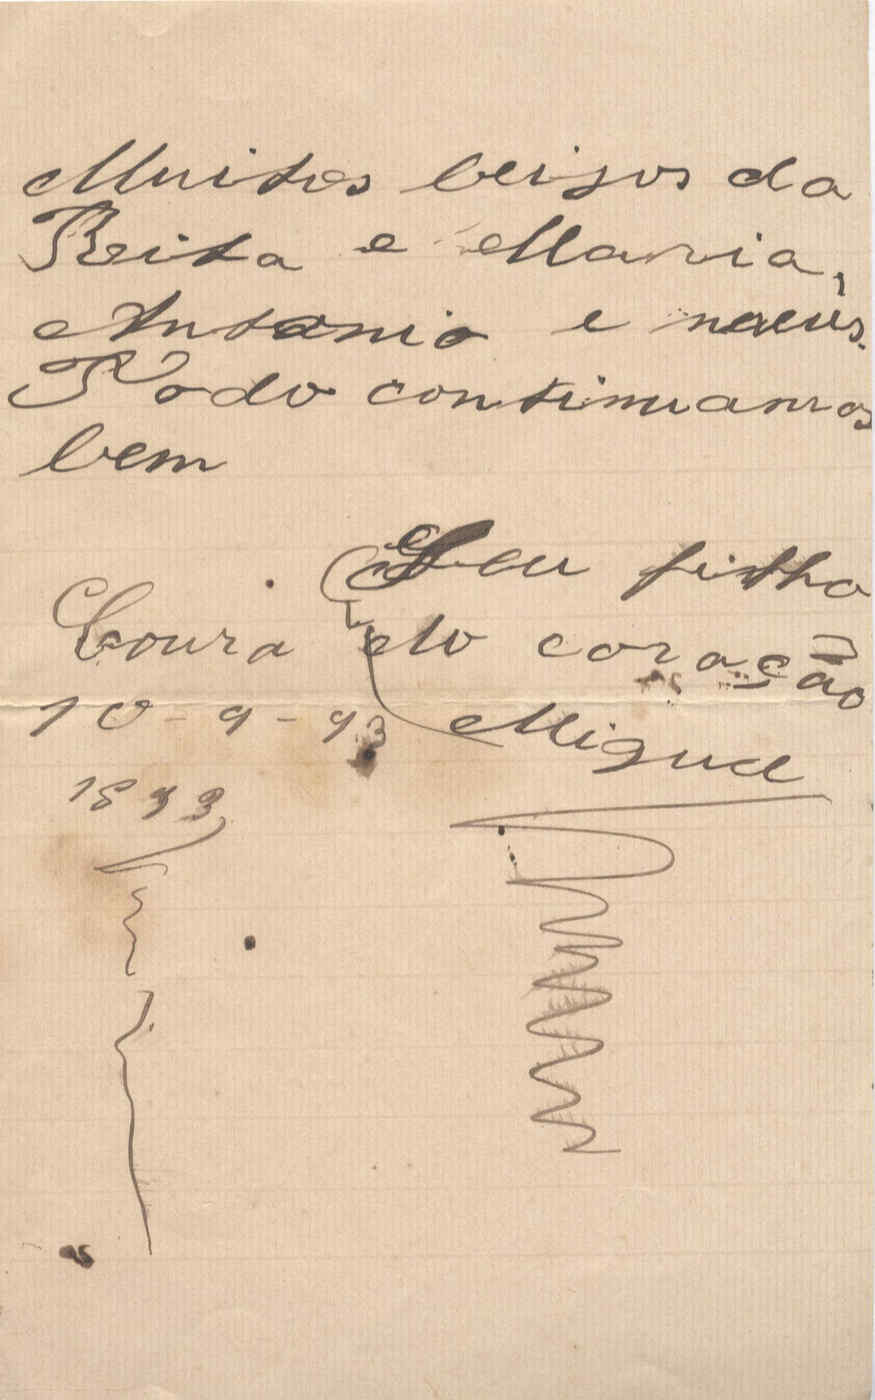 Muitos beijos da
Reita e Maria,
Antonio e meus.
Todo continuamos
bem
Seu filho
Coura do coração
10-9-93 Miguel
1893